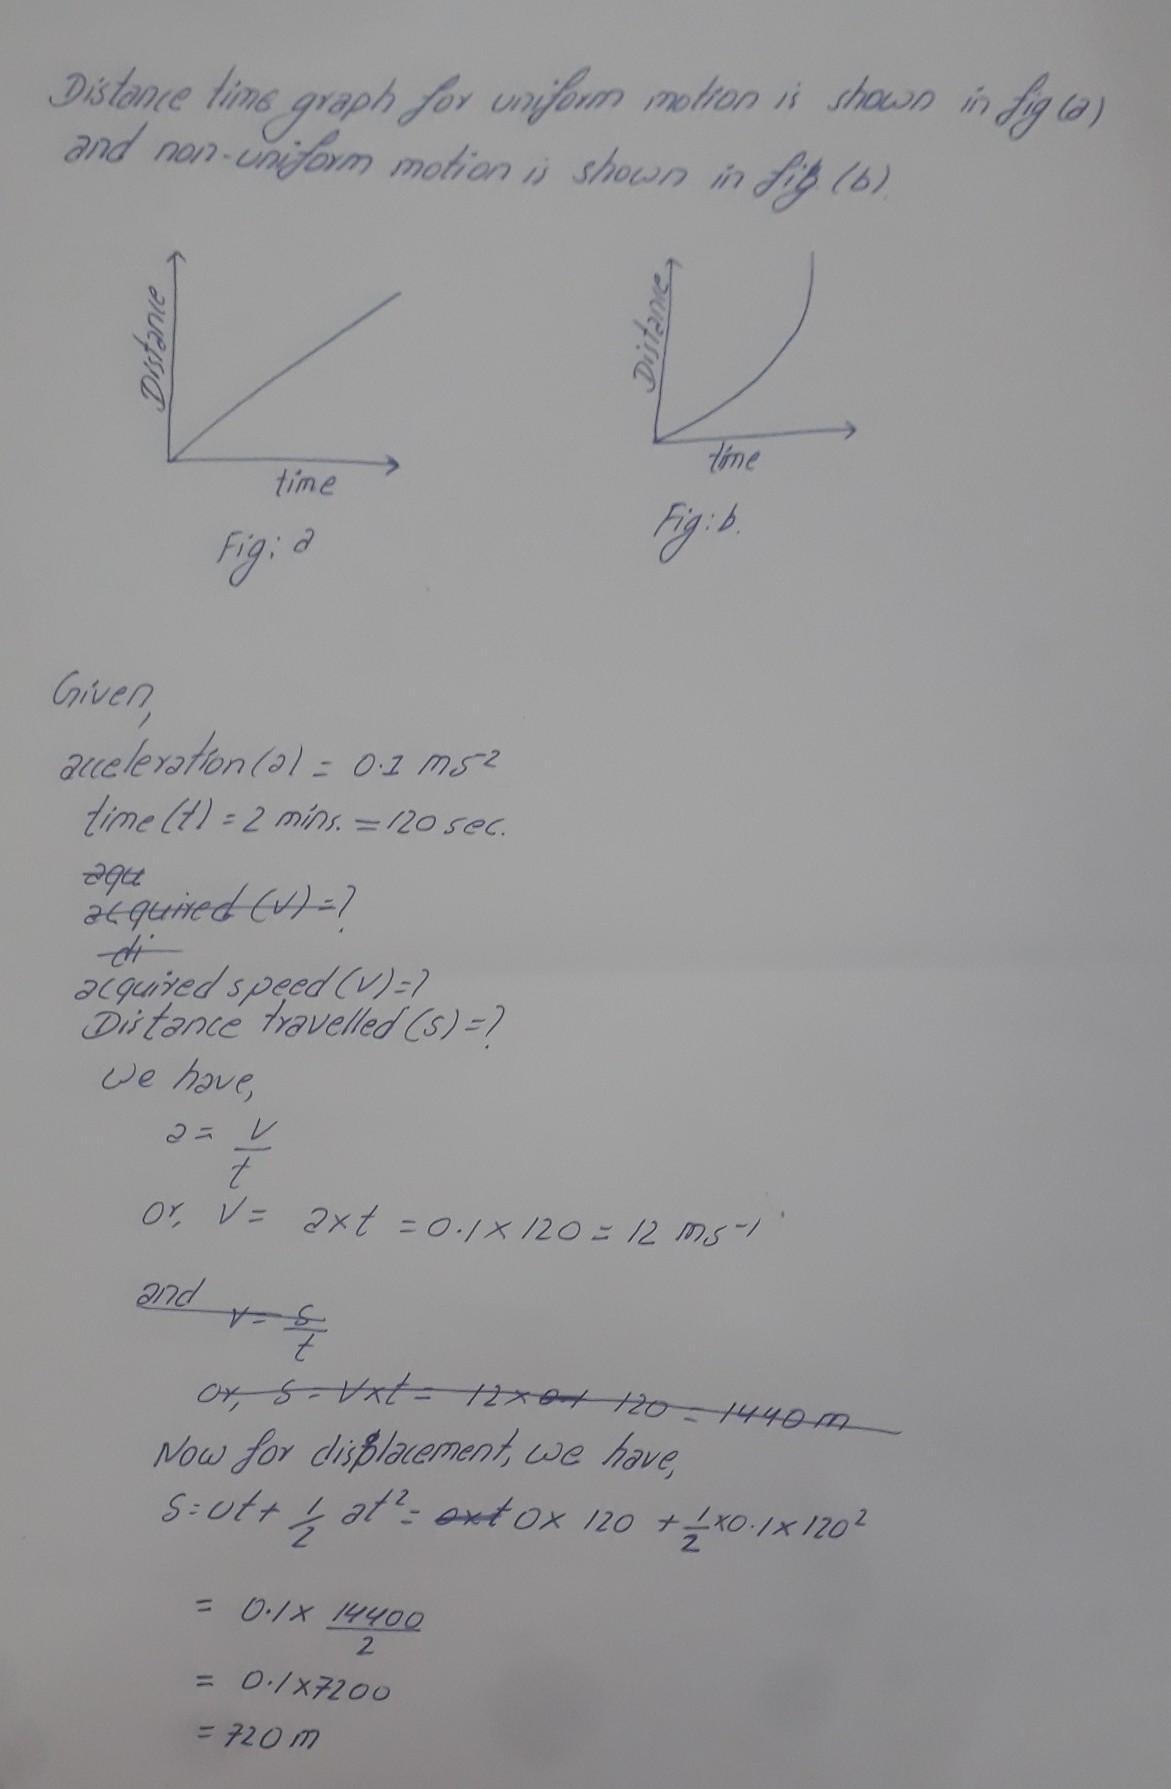 Distance time graph for uniform motion is shown in fig (a)
and non-uniform motion is shown in fig (b).
Distance
time
Fig: a
Distance
time
Fig: b.
Given,
acceleration (a) = 0.1 ms⁻²
time (t) = 2 mins. = 120 sec.
aqu
acquired (v) = ?
di
acquired speed (v) = ?
Distance travelled (s) = ?
we have,
a = v/t
or, v = a×t = 0.1 × 120 = 12 ms⁻¹
and v = s/t
or, s = v×t = 12 × 0.1 120 = 1440 m
Now for displacement, we have,
s = ut + 1/2 at² = 0×t 0 × 120 + 1/2 × 0.1 × 120²
= 0.1 × 14400/2
= 0.1 × 7200
= 720 m